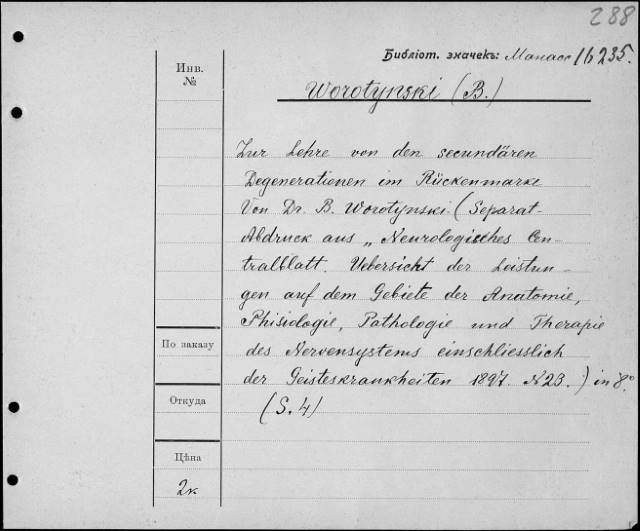 288
Библіот. значекъ: Манасс 16235.
Инв.
№
Worotynski (B.)
Zur Lehre von den secundären
Degenerationen im Rückenmarke
Von Dr. B. Worotynski (Separat-
Abdruck aus „Neurologisches Cen-
tralblatt. Uebersicht der Leistun-
gen auf dem Gebiete der Anatomie,
Phisiologie, Pathologie und Therapie
des Nervensystems einschliesslich
der Geisteskrankheiten 1897. N23.) in 8°.
(S. 4)
По заказу
Откуда
Цѣна
2к